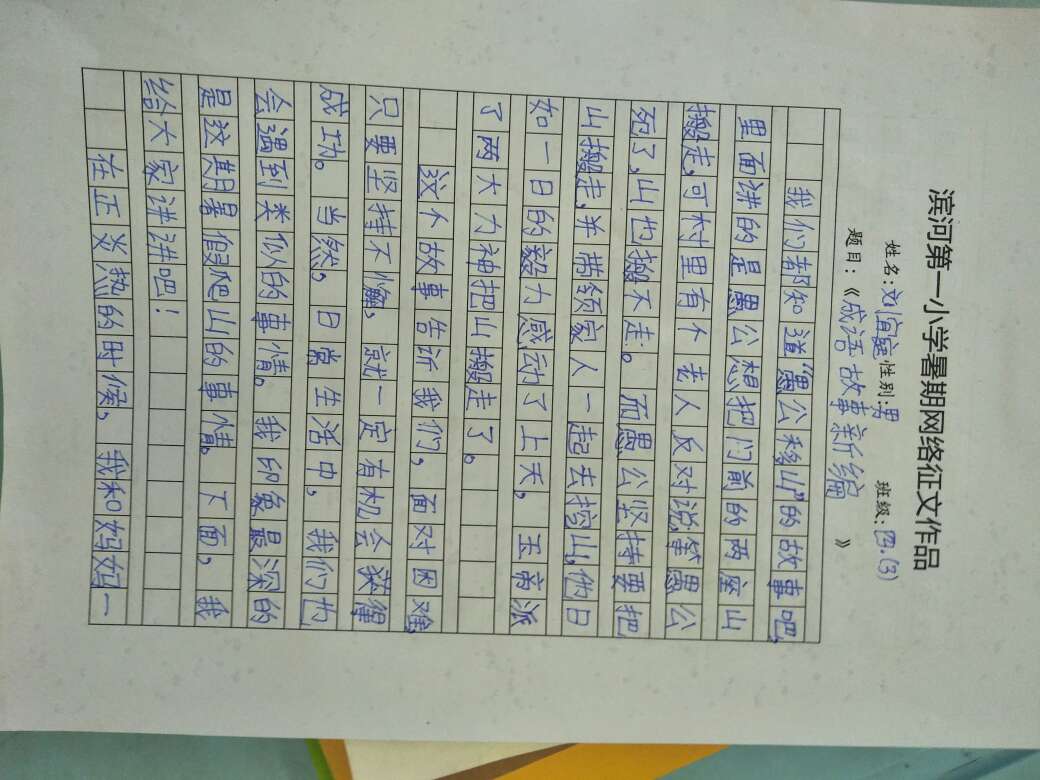 滨河第一小学暑期网络征文作品
姓名:刘宜 性别:男 班级:四.(3)
题目:《成语故事新编》
我们都知道“愚公移山”的故事吧,
里面讲的是愚公想把门前的两座山
搬走,可村里有个老人反对说,等愚公
死了,山也搬不走。而愚公坚持要把
山搬走,并带领家人一起去挖山,他日
如一日的毅力感动了上天,玉帝派
了两大力神把山搬走了。
这个故事告诉我们,面对困难,
只要坚持不懈,就一定有机会获得
成功。当然,日常生活中,我们也
会遇到类似的事情。我印象最深的
是这期暑假爬山的事情。下面,我
给大家讲讲吧!
在正炎热的时候,我和妈妈一